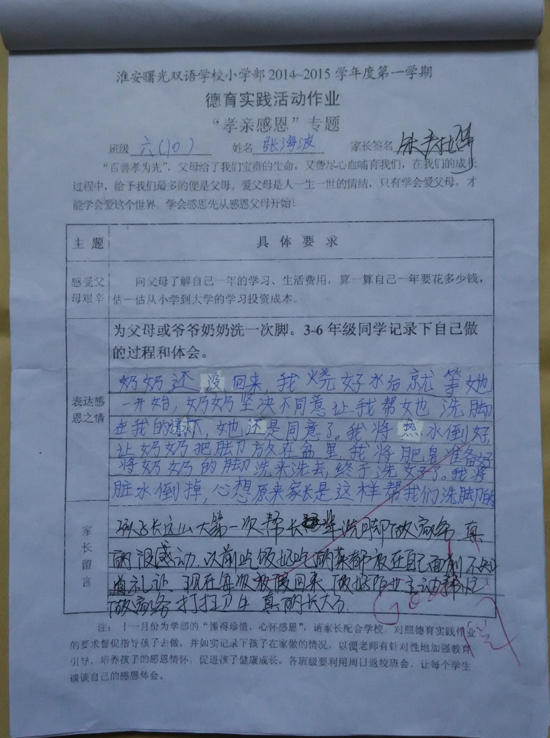 淮安曙光双语学校小学部 2014~2015 学年度第一学期
德育实践活动作业
“孝亲感恩”专题
班级 六(10) 姓名 张海波 家长签名
“百善孝为先”，父母给了我们宝贵的生命，又费尽心血哺育我们，在我们的成长
过程中，给予我们最多的便是父母。爱父母是人一生一世的情结，只有学会爱父母，才
能学会爱这个世界，学会感恩先从感恩父母开始！
主 题 具 体 要 求
感受父母艰辛
向父母了解自己一年的学习、生活费用，算一算自己一年要花多少钱，
估一估从小学到大学的学习投资成本。
表达感恩之情
为父母或爷爷奶奶洗一次脚。3-6 年级同学记录下自己做
的过程和体会。
奶奶还没回来，我烧好水后就等她
一开始，奶奶坚决不同意让我帮她洗脚
在我的 下，她还是同意了。我将热水倒好，
让奶奶把脚放在盆里，我将肥皂准备好
将奶奶的脚洗来洗去，终于洗好了。我将
脏水倒掉，心想原来家长是这样帮我们洗脚的
家长留言
孩子长这么大第一次帮长辈洗脚做家务，真
的很感动，以前吃饭把吃的菜都放在自己面前不知
道礼让，现在每次放假回来做作业主动帮忙
做家务打扫卫生真的长大了
注：十一月份为学部的“懂得珍惜、心怀感恩”，请家长配合学校，对照德育实践作业
的要求督促指导孩子去做，并如实记录下孩子在家做的情况，以便老师有针对性地加强教育
引导，培养孩子的感恩情怀，促进孩子健康成长。各班级要利用周日返校班会，让每个学生
谈谈自己的感恩体会。